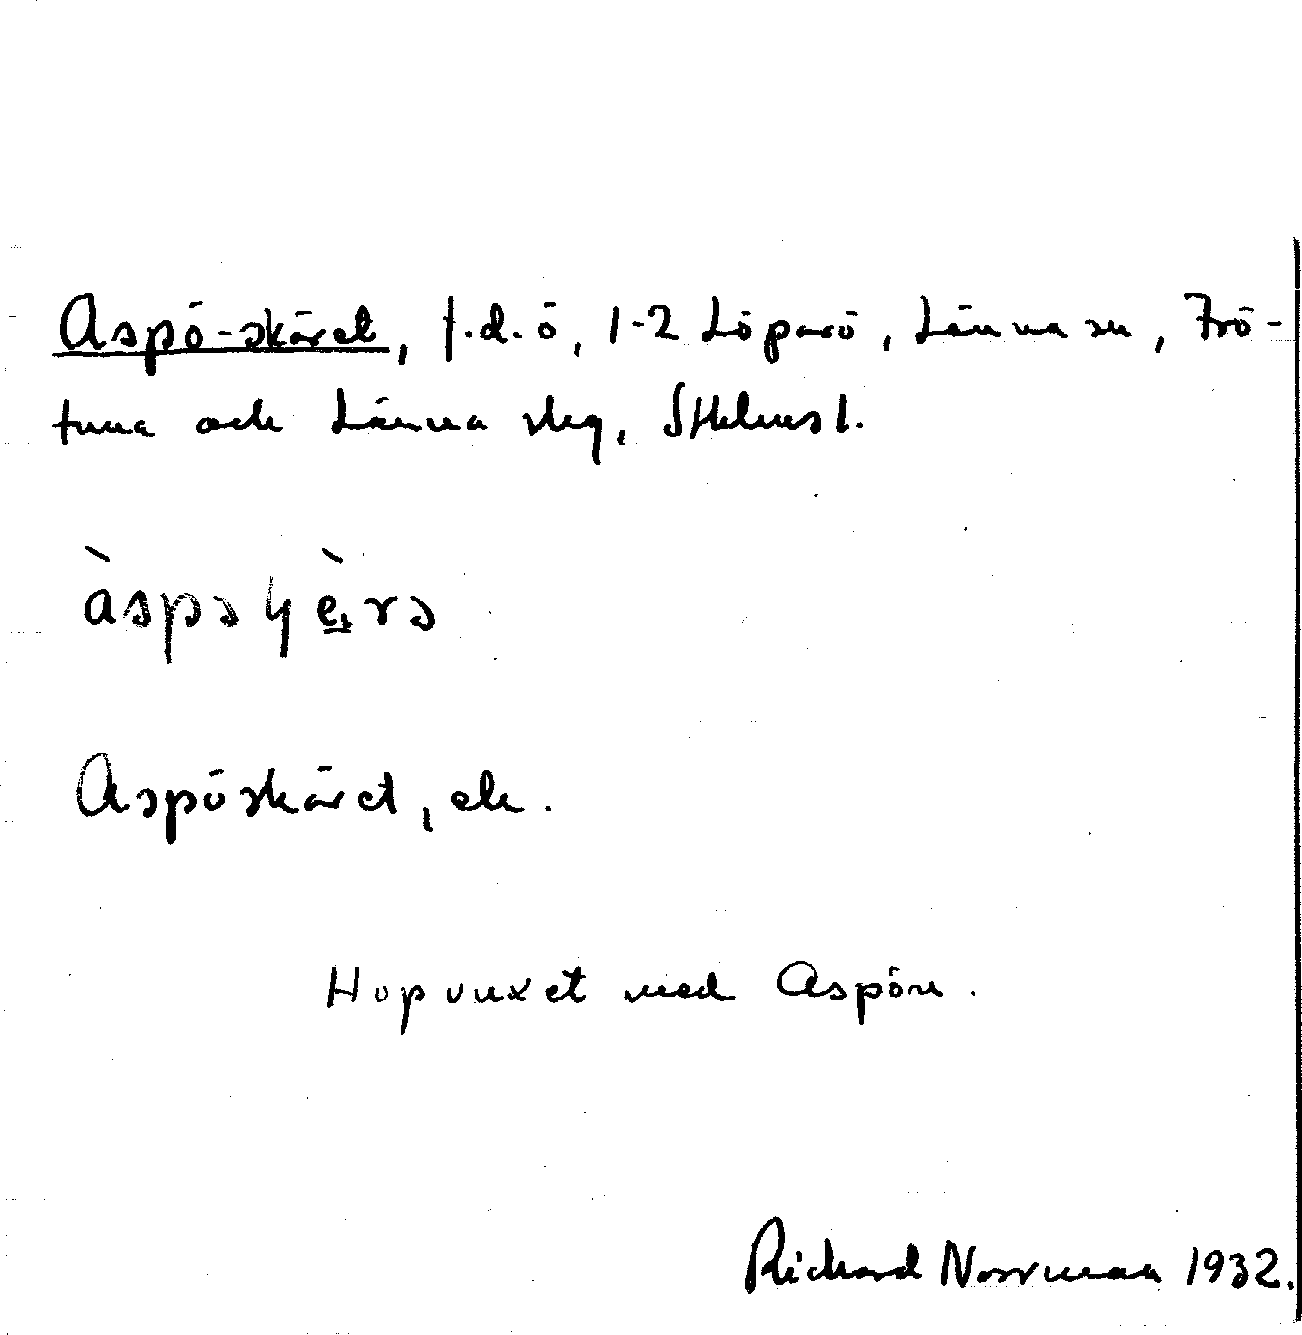 Aspö-skäret, f.d. ö, 1-2 Löparö, Länna sn, Frö-
tuna och Länna skg, Sthlms l.
àspəɧè̱rə
Aspöskäret, ek.
Hopvuxet med Aspön.
Richard Norrman 1932.